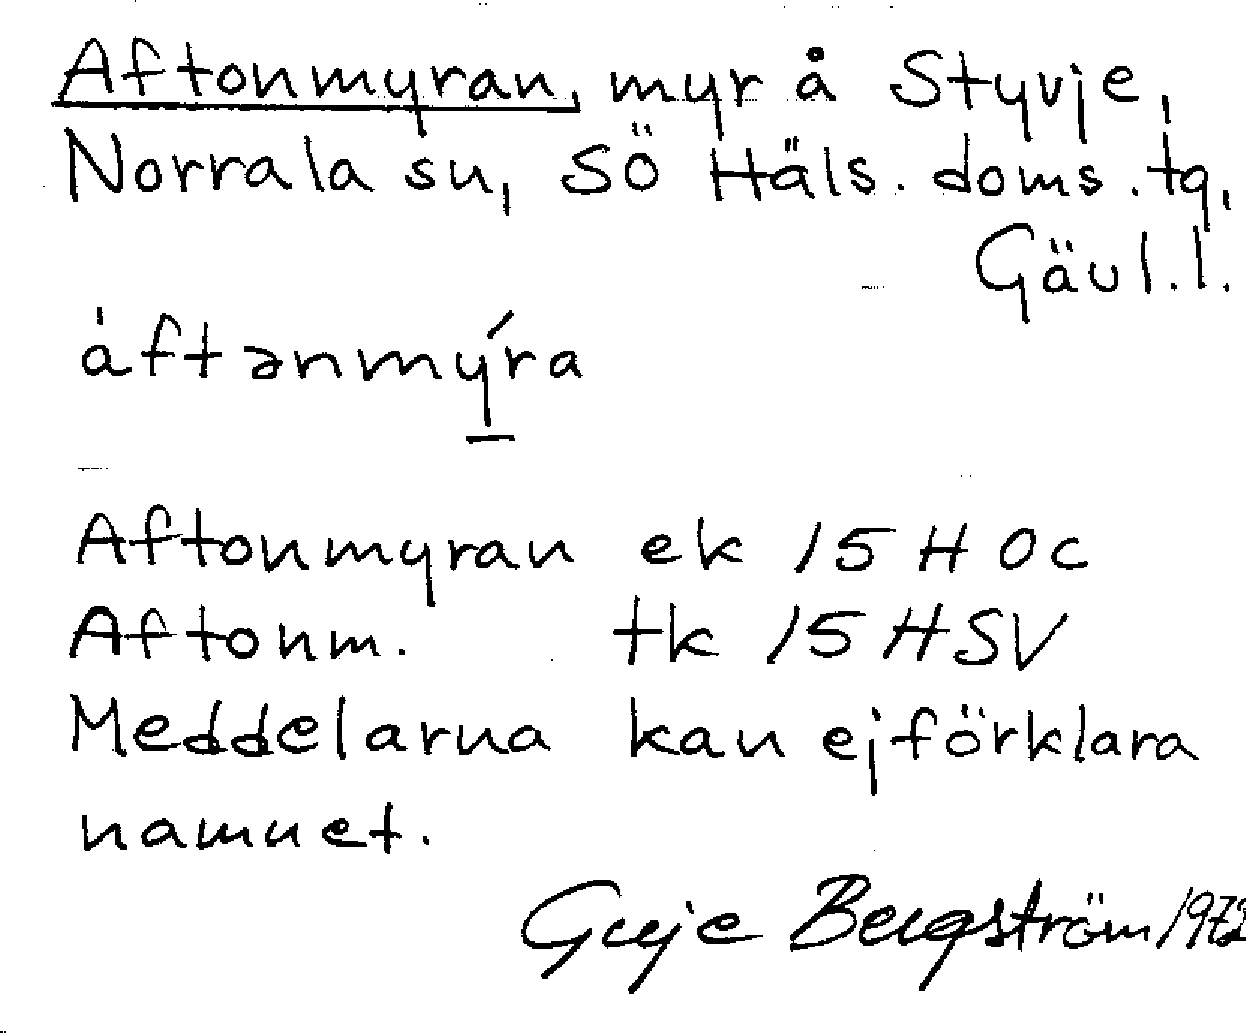 Aftonmyran, myr å Styvje,
Norrala sn, SÖ Häls. doms. tg,
Gävl.l.
áftənmý̱ra
Aftonmyran ek 15H 0c
Aftonm. tk 15H SV
Meddelarna kan ej förklara
namnet.
Bergström 1972